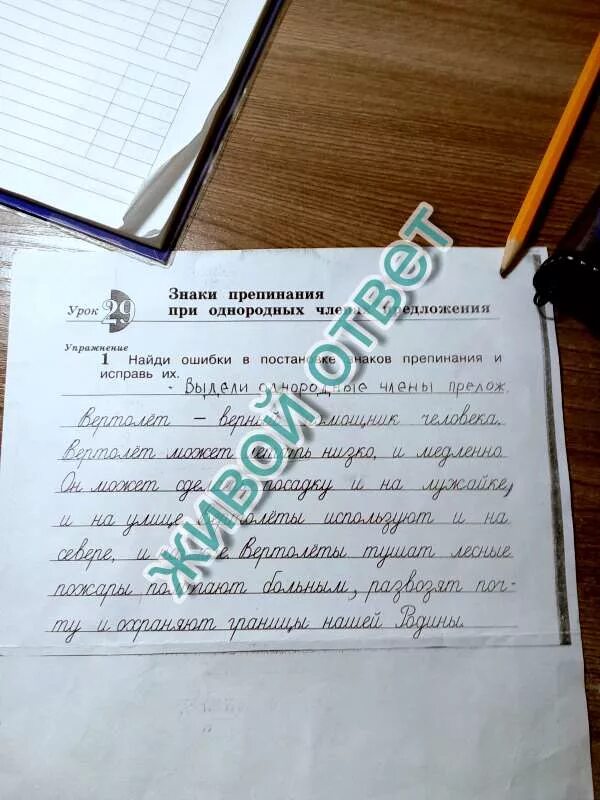 Урок 29
Знаки препинания
при однородных членах предложения
Упражнение
1 Найди ошибки в постановке знаков препинания и
исправь их.
- Выдели однородные члены прелож.
Вертолёт – верный помощник человека.
Вертолёт может летать низко, и медленно
Он может посадку и на лужайке,
и на улице. Вертолёты используют и на
севере, и Вертолёты тушат лесные
пожары помогают больным, развозят поч-
ту и охраняют границы нашей Родины.
ЖИВОЙ ОТВЕТ